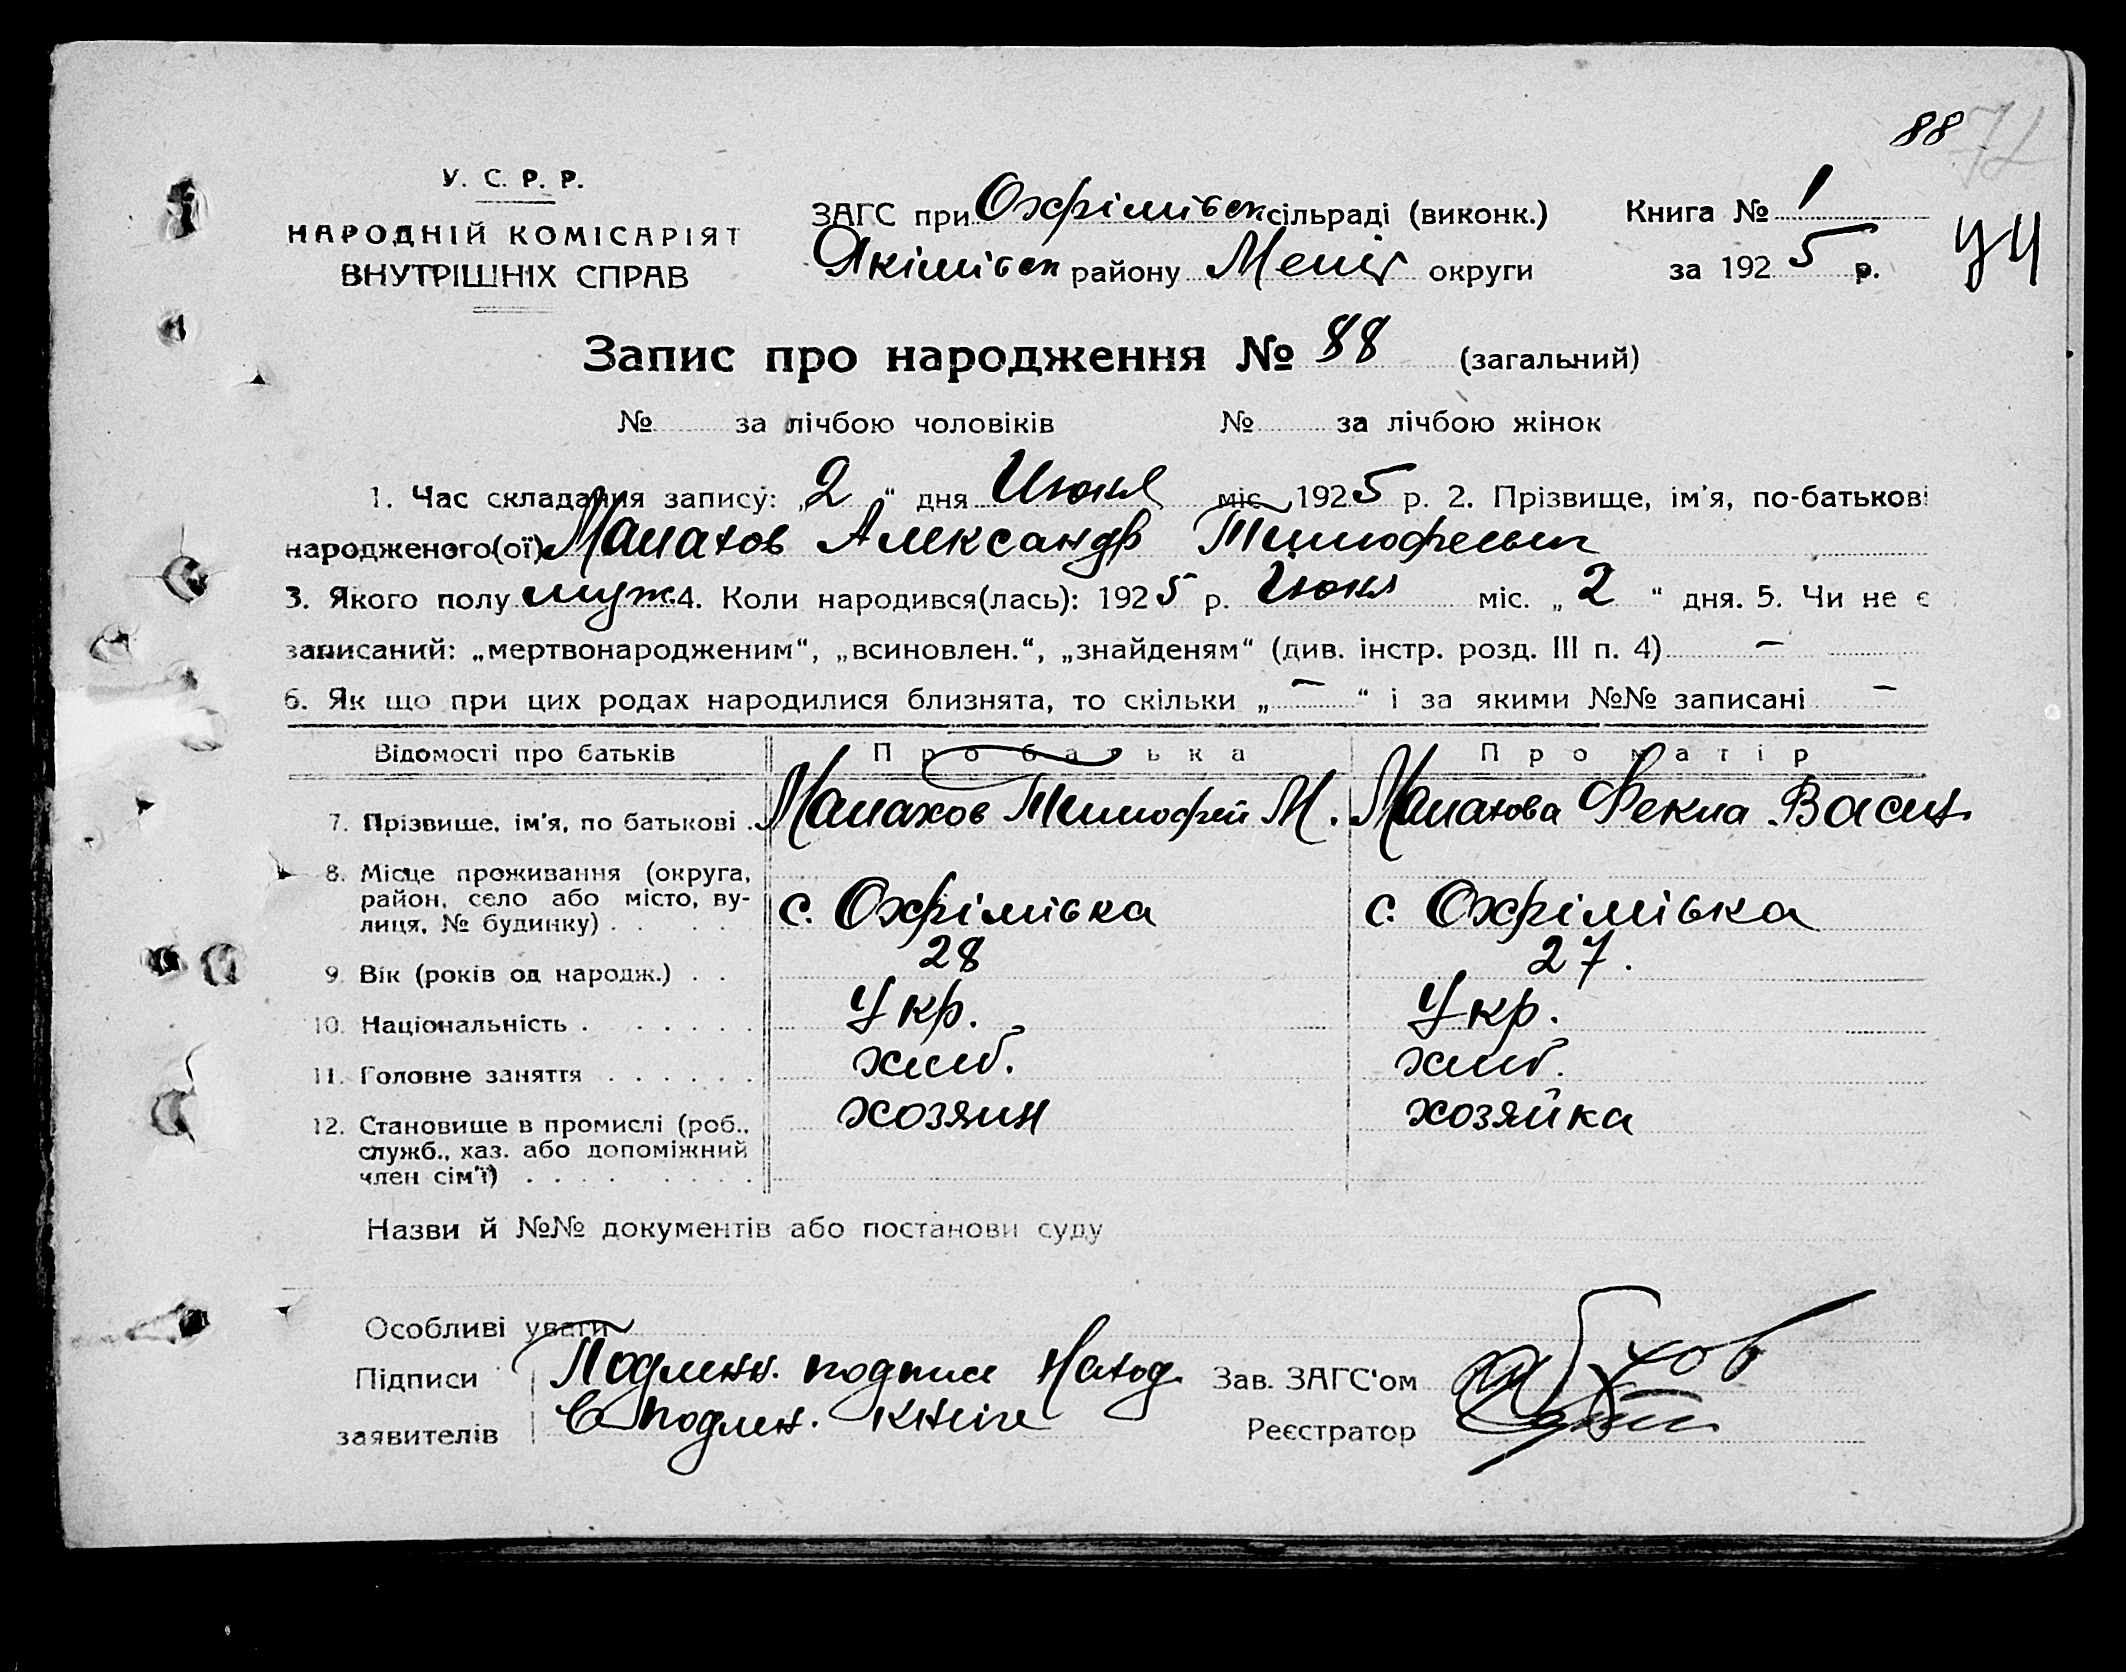 88 72
У. С. Р. Р.
НАРОДНІЙ КОМІСАРІЯТ
ВНУТРІШНІХ СПРАВ
ЗАГС при Охфімівск сільраді (виконк.)
Якімівск району Меліт округи
Книга № 1
за 1925 р.
Запис про народження № 88 (загальний)
№ за лічбою чоловіків № за лічбою жінок
1. Час складання запису: „2“ дня Июля міс 1925 р. 2. Прізвище, ім'я, по-батькові
народженого(ої) Малахов Александр Тимофеевич
3. Якого полу муж. 4. Коли народився(лась): 1925 р. Июля міс. „2“ дня. 5. Чи не є
записаний: „мертвонародженим“, „всиновлен.“, „знайденям“ (див. інстр. розд. III п. 4) —
6. Як що при цих родах народилися близнята, то скільки „—“ і за якими №№ записані —
Відомості про батьків Про батька Про матір
7. Прізвище, ім'я, по батькові . Малахов Тимофей М. Малахова Фекла Васил
8. Місце проживання (округа,
район, село або місто, ву-
лиця, № будинку) . . . . с. Охфімівка с. Охфімівка
9. Вік (років од народж.) . . 28 27.
10. Національність . . . . . . Укр. Укр.
11. Головне заняття . . . . . . хлиб. хлиб.
12. Становище в промислі (роб., хозяин хозяйка
служб., хаз. або допоміжний
член сім'ї) . . . . . . . .
Назви й №№ документів або постанови суду
Особливі уваги
Підписи Подлинн. подписи Наход. Зав. ЗАГС'ом
заявителів в подлин. книге Реєстратор